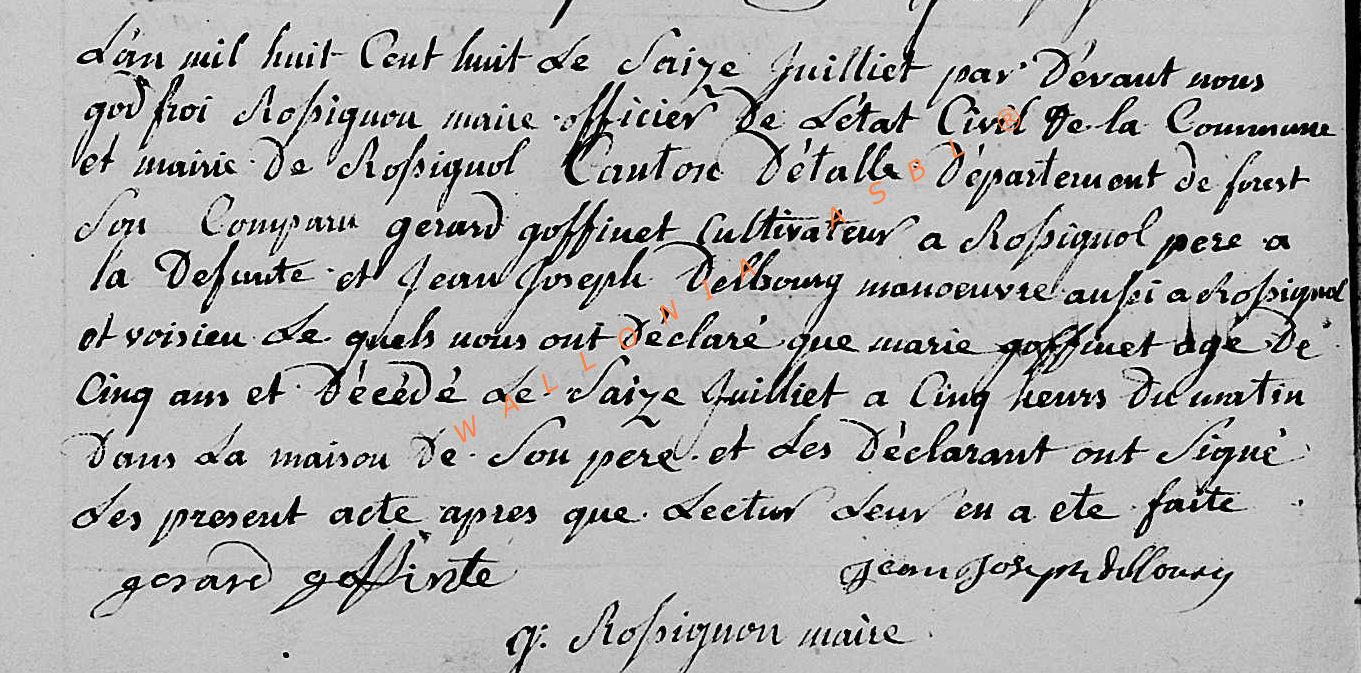 L'an mil huit Cent huit Le Saize Juilliet par Dévant nous
godfroi Rossignon maire officier De L'état Civil De la Commune
et mairie De Rossignol Canton Détalle Département de forest
Son Comparu gerard goffinet Cultivateur a Rossignol pere a
la Defunte et Jean Joseph Delbourg manoeuvre aussi a Rossignol
et voisien Le quels nous ont Déclaré que marie goffinet agé De
Cinq ans et Décédé Le Saize Juilliet a Cinq heurs Du matin
Dans La maison De Son pere et Les Déclarant ont Signé
Les present acte apres que Lectur Leur en a ete faite
gerard goffinte
Jean Joseph delbourg
g: Rossignon maire
WALLONIA ASBL ®